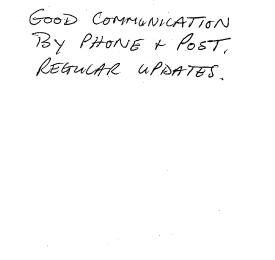 GOOD COMMUNICATION
BY PHONE + POST.
REGULAR UPDATES.